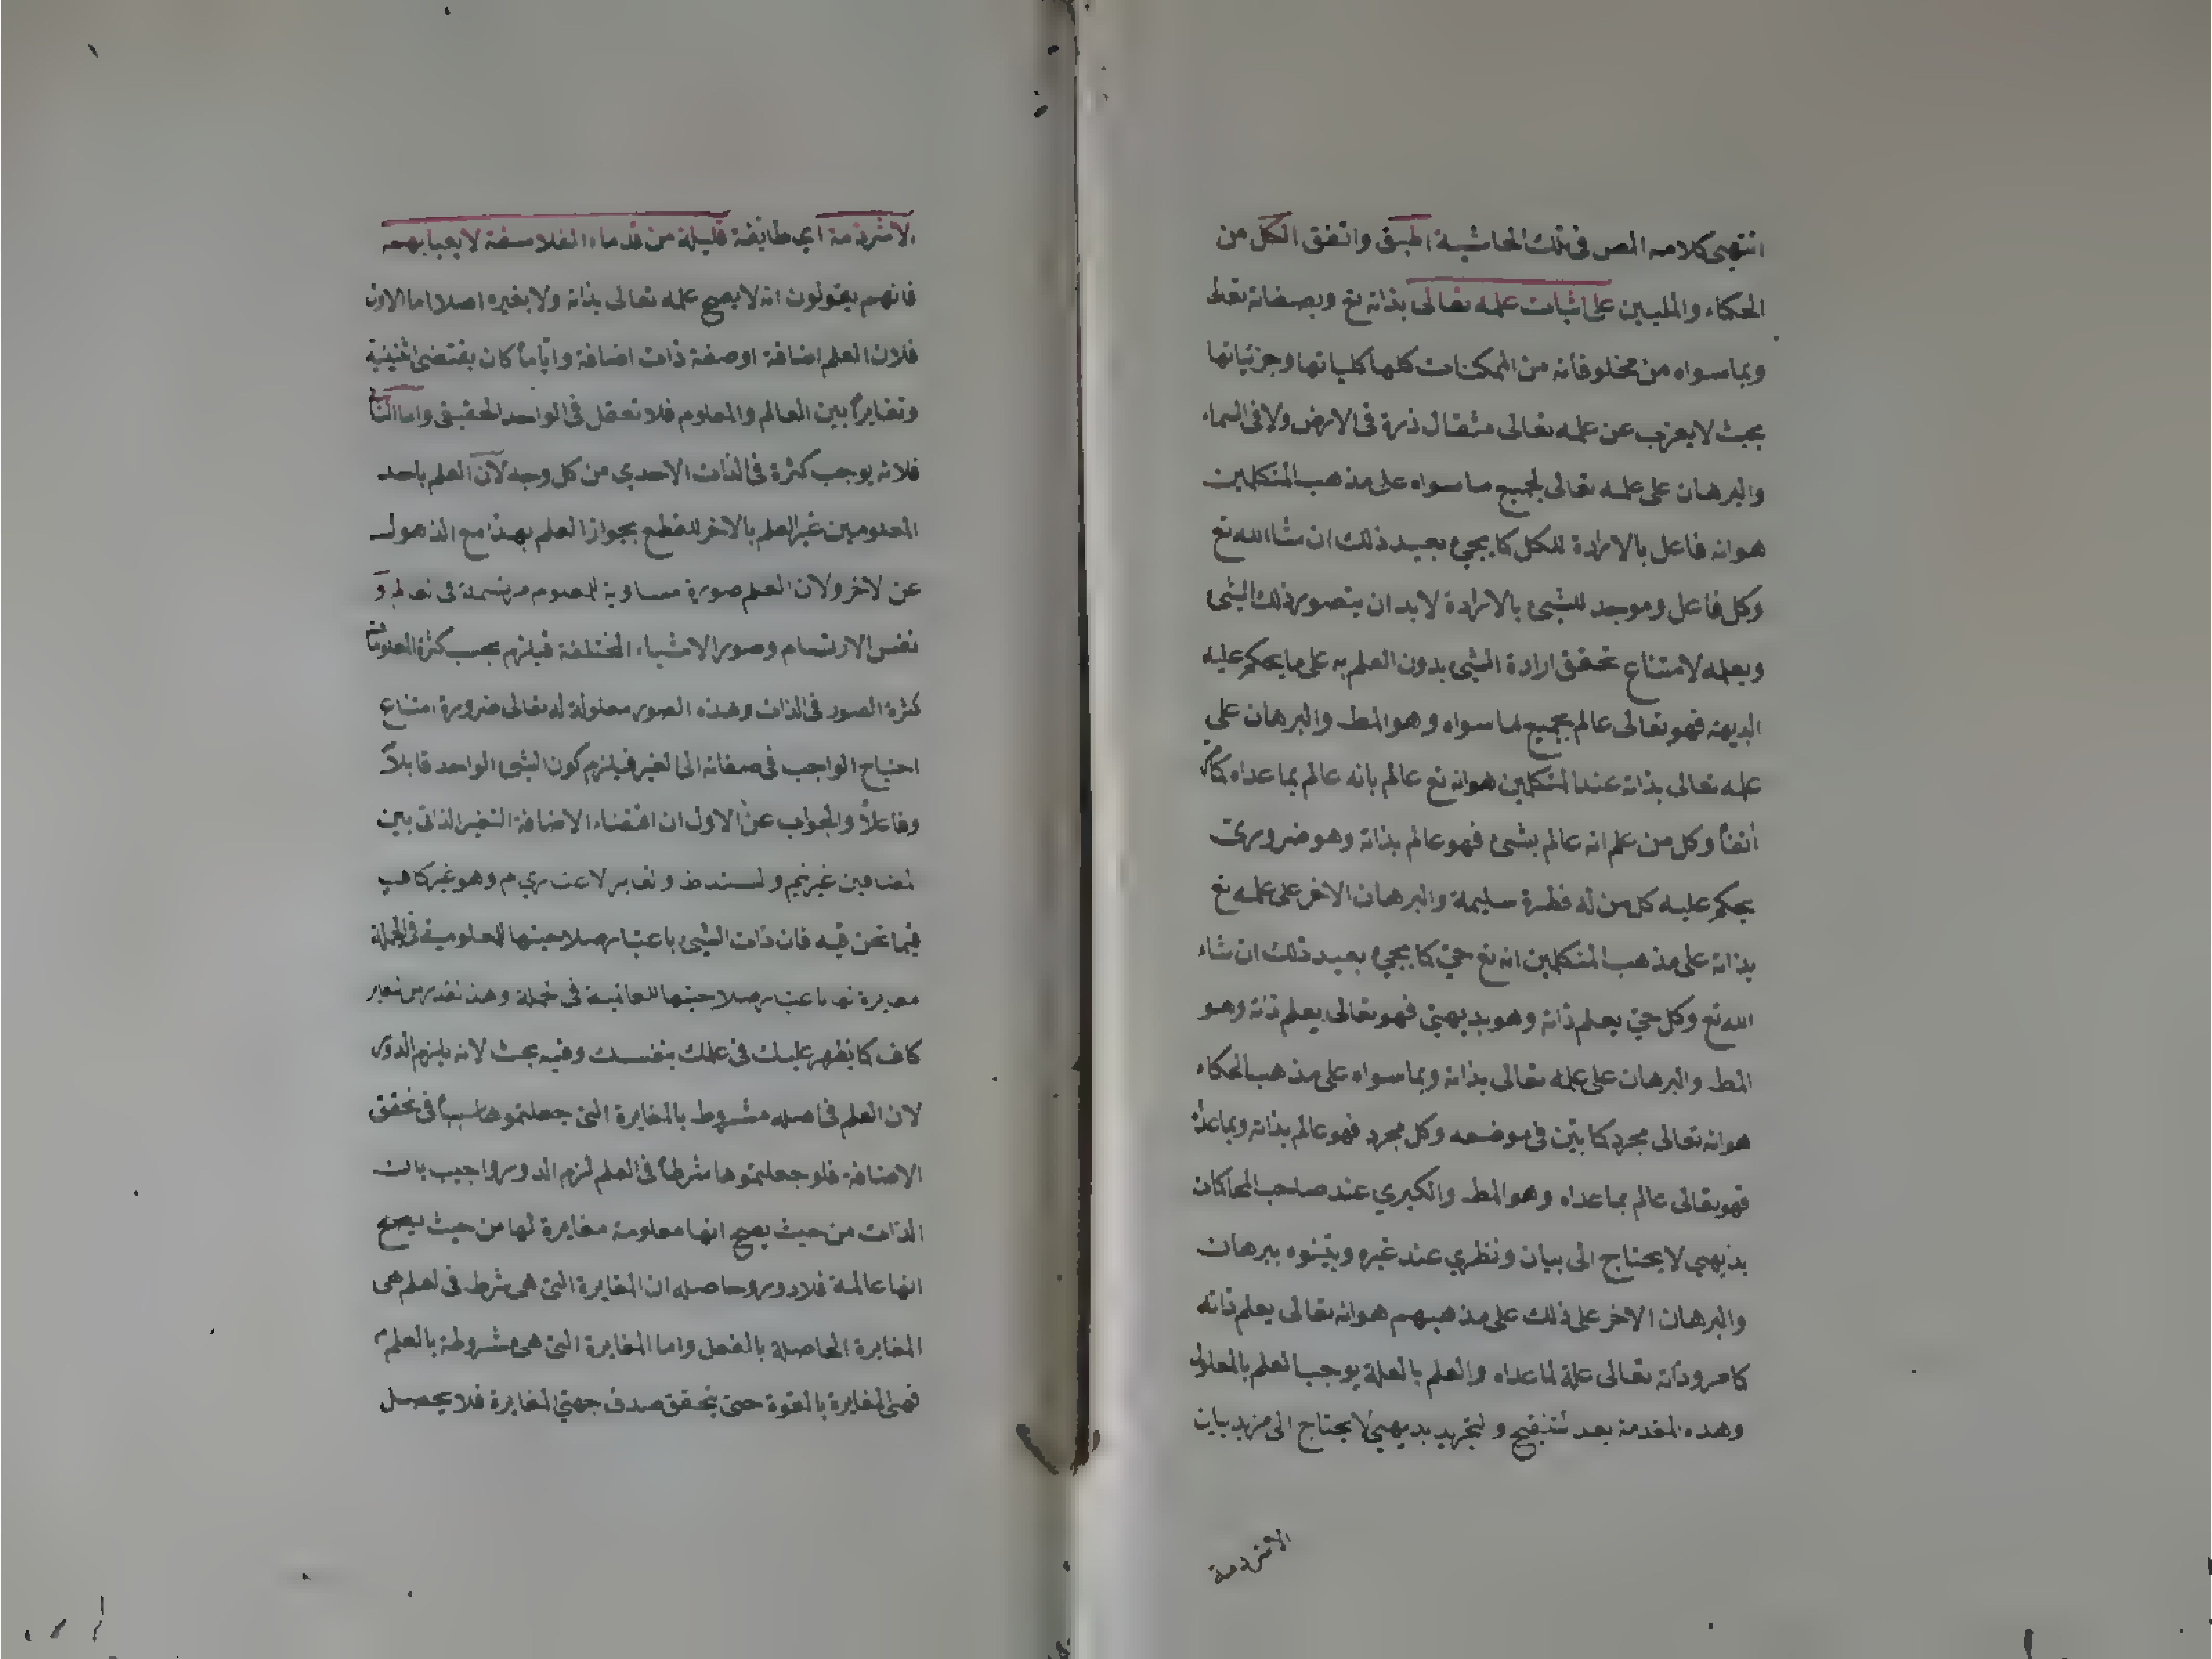 انتهى كلامه المص في تلك الحاشية واتفق الكل من
الحكماء والمليين على اثبات علمه تعالى بذاته تع وبصفاته
وبما سواه من مخلوقاته من الممكنات كلها كلياتها وجزئياتها
بحيث لا يعزب عن علمه تعالى مثقال ذرة في الارض ولا في السماء
والبرهان على علمه تعالى لجميع ما سواه على مذهب المتكلمين
هو انه فاعل بالارادة للكل كما يجيء بعيد ذلك ان شاالله تع
وكل فاعل وموجد للشيء بالارادة لا بد ان يتصور ذلك الشيء
ويعلمه لامتناع تحقق ارادة الشيء بدون العلم به على ما يحكم عليه
البديهة فهو تعالى عالم بجميع ما سواه وهو المط والبرهان على
علمه تعالى بذاته عند المتكلمين هو انه تع عالم بانه عالم بما عداه كما مر
آنفاً وكل من علم انه عالم بشيء فهو عالم بذاته وهو ضروري
يحكم عليه كل من له فطرة سليمة والبرهان الاخر على علمه تع
بذاته على مذهب المتكلمين انه تع حيّ كما يجيء بعيد ذلك ان شاء
الله تع وكل حيّ يعلم ذاته وهو بديهيّ فهو تعالى يعلم ذاته وهو
المط والبرهان على علمه تعالى بذاته وبما سواه على مذهب الحكماء
هو انه تعالى مجرد كما بيّن في موضعه وكل مجرد فهو عالم بذاته وبما عداه
فهو تعالى عالم بما عداه وهو المط والكبري عند صاحب المحاكمات
بديهي لا يحتاج الى بيان ونظري عند غيره وبيّنوه ببرهان
والبرهان الاخر على ذلك على مذهبهم هو انه تعالى يعلم ذاته
كما مر وذاته تعالى علة لما عداه والعلم بالعلة يوجب العلم بالمعلول
وهذه المقدمة بعد تنقيح و تجريد بديهيّ لا يحتاج الى مزيد بيان
الا شرذمة
الا شرذمة اي طايفة قليلة من قدماء الفلاسفة لا يعبا بهم
فانهم يقولون انه لا يصح علمه تعالى بذاته ولا بغيره اصلا اما الاول
فلان العلم اضافة او صفة ذات اضافة وايّاما كان يقتضي اثنينية
وتغايراً بين العالم والمعلوم فلا تعقل في الواحد الحقيقي واما الثا
فلانه يوجب كثرة في الذات الاحدي من كل وجه لان العلم باحد
المعلومين غير العلم بالاخر للقطع بجواز العلم بهذا مع الذهول
عن لاخر ولان العلم صورة مساوية للمعلوم مرتسمة في العالم و
نفس الارتسام وصور الاشياء المختلفة فيلزم بحسب كثرة المعلومات
كثرة الصور في الذات وهذه الصور معلولة له تعالى ضرورة امتناع
احتياج الواجب في صفاته الى الغير فيلزم كون الشيء الواحد قابلاً
وفاعلاً والجواب عن الاول ان اقتضاء الاضافة التغير الذاتي بين
المضافين غير وهو غير كاهب
فيما نحن فيه فان ذات الشيء باعتبار صلاحيتها للمعلومية في الجملة
مغايرة لها باعتبار صلاحيتها للعالمية في الجملة وهذا القدر من التغير
كاف كما يظهر عليك في علمك بنفسك وفيه بحث لانه يلزم الدور
لان العلم في اصله مشروط بالمغايرة التي جعلتموها سبباً في تحقق
الاضافة فلو جعلتموها شرطاً في العلم لزم الدور واجيب بان
الذات من حيث يصح انها معلومة مغايرة لها من حيث يصح
انها عالمة فلا دور وحاصله ان المغايرة التي هي شرط في العلم هي
المغايرة الحاصلة بالفعل واما المغايرة التي هي مشروطة بالعلم
فهي المغايرة بالقوة حتى يتحقق صدق جهتي المغايرة فلا يحصل